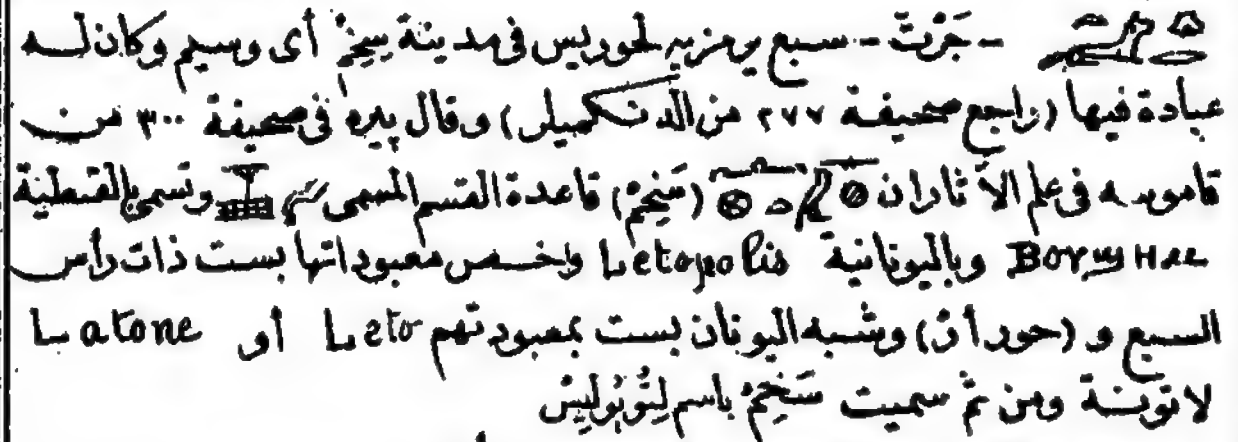 - جَرْتْ - سبع يرمز به لحوريس فى مدينة سِخِمْ أى وسيم وكان له
عبادة فيها (راجع صحيفة ٢٧٧ من الدنكميلر) وقال بيره فى صحيفة ٣٠٠ من
قاموسه فى علم الآثار ان (سَخِمْ) قاعدة القسم المسمى وتسمى بالقبطية
وباليونانية Letopolis واخـص معبوداتها بست ذات رأس
السبع و (حورأز) وشبه اليونان بست بمعبودتهم Leto أو Latone
لاتونة ومن ثم سميت سَخِمْ باسم لِتُوبُولِيسْ